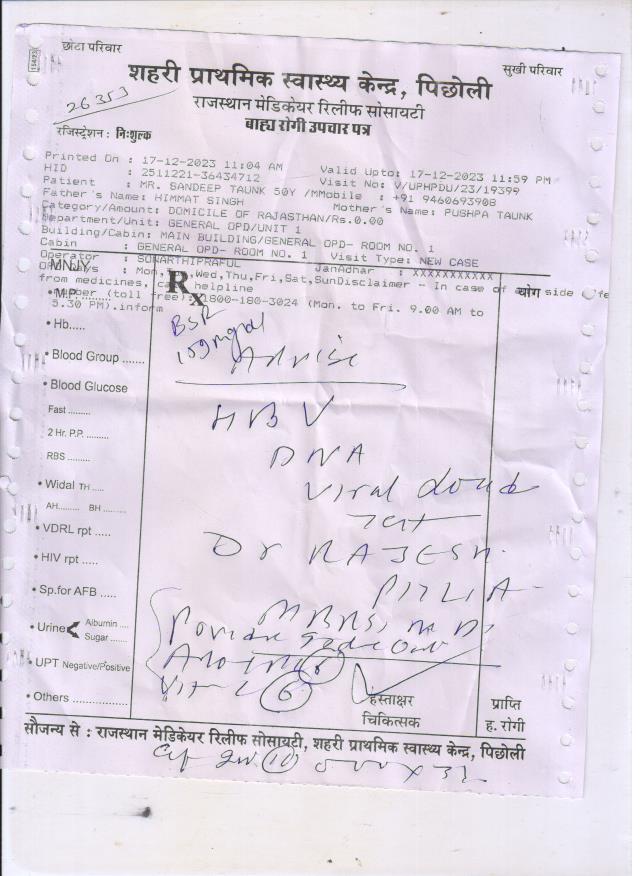 छोटा परिवार
सुखी परिवार
शहरी प्राथमिक स्वास्थ्य केन्द्र, पिछोली
26353
राजस्थान मेडिकेयर रिलीफ सोसायटी
रजिस्ट्रेशन : निःशुल्क
बाह्य रोगी उपचार पत्र
Printed On : 17-12-2023 11:04 AM Valid Upto: 17-12-2023 11:59 PM
HID : 2511221-36434712 Visit No: V/UPHPDU/23/19399
Patient : MR. SANDEEP TAUNK 50Y /M Mobile : +91 9460693908
Father's Name: HIMMAT SINGH Mother's Name: PUSHPA TAUNK
Category/Amount: DOMICILE OF RAJASTHAN/Rs.0.00
Department/Unit: GENERAL OPD/UNIT 1
Building/Cabin: MAIN BUILDING/GENERAL OPD- ROOM NO. 1
Cabin : GENERAL OPD- ROOM NO. 1 Visit Type: NEW CASE
Operator : SONARTHIPRAFUL JanAdhar : xxxxxxxxxxx
Mon, Wed,Thu,Fri,Sat,SunDisclaimer - In case of side
from medicines, helpline
(toll free): 1800-180-3024 (Mon. to Fri. 9.00 AM to
5.30 PM).inform
Rx
योग
• M.P.........
• Hb.....
159 mg/dl
Advise
• Blood Group .......
• Blood Glucose
HBV
Fast .........
2 Hr. P.P. .........
DNA
RBS .........
Viral
• Widal TH ....
AH......... BH .........
• VDRL rpt .....
Dr RAJESH
• HIV rpt .....
• Sp.for AFB .....
MBBS, MD
• Urine Albumin .....
Sugar ......
• UPT Negative/Positive
6
• Others ................
हस्ताक्षर
चिकित्सक
प्राप्ति
ह. रोगी
सौजन्य से : राजस्थान मेडिकेयर रिलीफ सोसायटी, शहरी प्राथमिक स्वास्थ्य केन्द्र, पिछोली